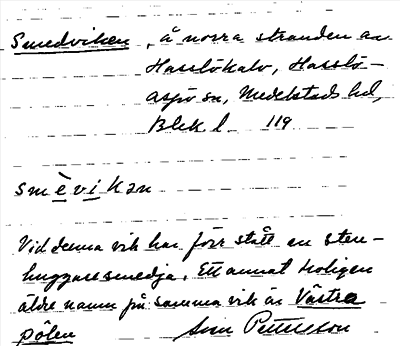 Smedviken, å norra stranden av
Hasslökalv, Hasslö-
aspö sn, Medelstads hd,
Blek l. 119
smèvikan
Vid denna vik har förr stått en sten-
huggaresmedja. Ett annat troligen
äldre namn på samma vik är Västra
pölen
Petterson